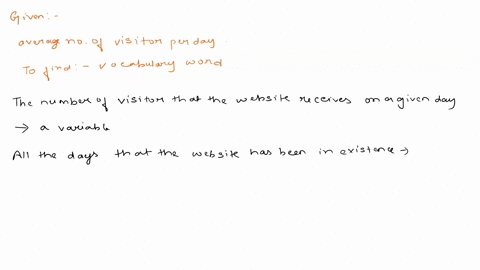 Given:-
average no. of visitor per day.
To find:- vocabulary word
The number of visitor that the website receives on a given day
→ a variable
All the days that the website has been in existence →